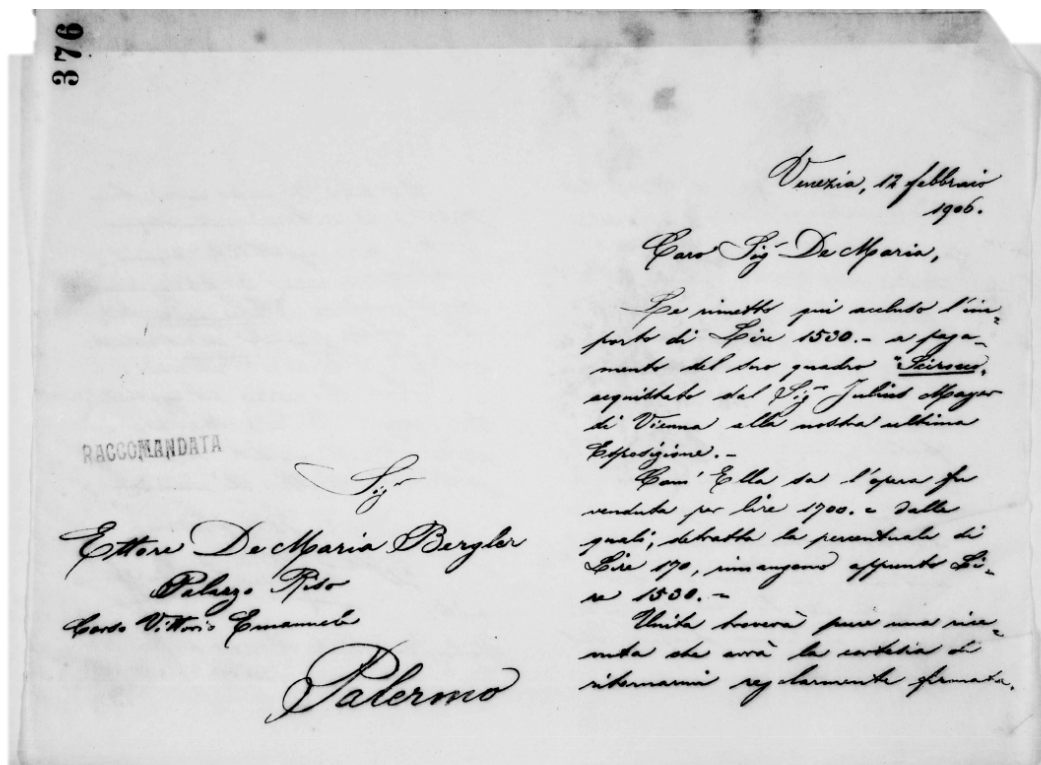 376
RACCOMANDATA
Sigr
Ettore De Maria Bergler
Palazzo Riso
Corso Vittorio Emanuele
Palermo
Venezia, 12 febbraio
1906.
Caro Sigr De Maria,
Le rimetto qui accluso l'im=
porto di Lire 1530.- a paga=
mento del suo quadro "Scirocco",
acquistato dal Sigr Julius Mayer
di Vienna alla nostra ultima
Esposizione.-
Com' Ella sa l'opera fu
venduta per lire 1700.= dalle
quali, detratta la percentuale di
Lire 170, rimangono appunto Li=
re 1530.-
Unita troverà pure una rice=
vuta che avrà la cortesia di
ritornarmi regolarmente firmata.